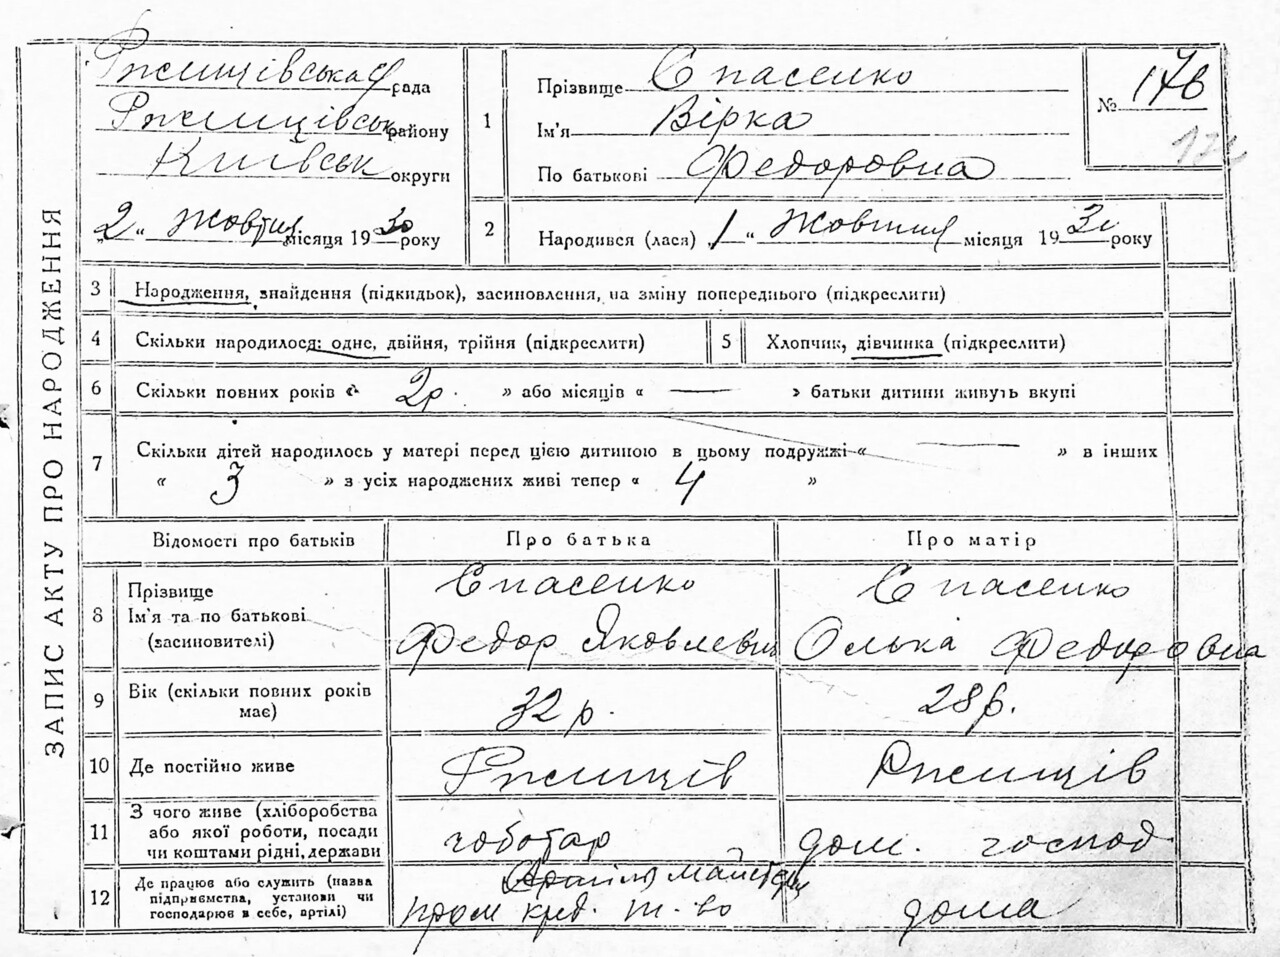 ЗАПИС АКТУ ПРО НАРОДЖЕННЯ
Ржищівська рада
Ржищівськ району
Київськ округи
„2“ жовтня місяця 1930 року
1
Прізвище Спасенко
Ім'я Вірка
По батькові Федоровна
№ 176
2
Народився (лася) „1“ жовтня місяця 193 року
3 Народження, знайдення (підкидьок), засиновлення, на зміну попереднього (підкреслити)
4 Скільки народилося: одне, двійня, трійня (підкреслити)
5 Хлопчик, дівчинка (підкреслити)
6 Скільки повних років « 2р. » або місяців « — » батьки дитини живуть вкупі
7 Скільки дітей народилось у матері перед цією дитиною в цьому подружжі « — » в інших
« 3 » з усіх народжених живі тепер « 4 »
Відомості про батьків Про батька Про матір
8 Прізвище Спасенко Спасенко
Ім'я та по батькові Федор Яковлевич Олька Федоровна
(засиновителі)
9 Вік (скільки повних років 32 р. 28 р.
має)
10 Де постійно живе Ржищів Ржищів
11 З чого живе (хліборобства
або якої роботи, посади чоботар дом. господ
чи коштами рідні, держави
12 Де працює або служить (назва
підприємства, установи чи пром кред. т-во дома
господарює в себе, артілі)